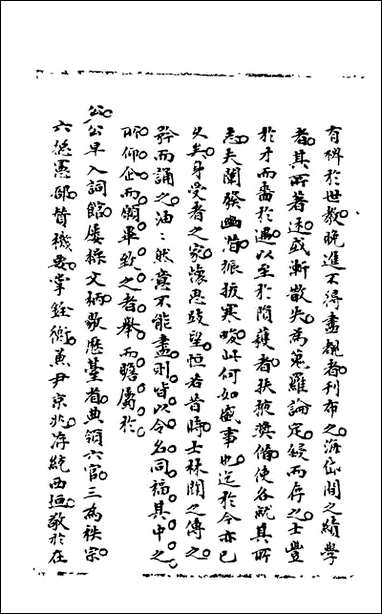 有稗於世教晚進不得盡覩者刊布之海邦間之績學
者其所著述或漸散失為蒐羅論定録而存之士豐
於才而嗇於遇以至於隕穫者扶掖獎借使各就其所
志夫闡發幽潛振拔寒畯此何如盛事也迄於今亦已
久矣身受者之家懷思跂望恒若昔時士林聞之傳之
矜而誦之油油然意不能盡則皆以令名同福其中之
所仰企而願畢致之者舉而瞻屬於
公公早入詞館屢操文柄敭歷臺省典領六官三為秩宗
六總憲邦贊機要掌銓衡兼尹京兆浮綂西垣敬於在